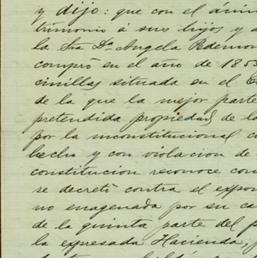 y dijo: que con el ánim
trimonio á sus hijos y a
la Sra Da Angela Redmon
compró en el año de 185
cinillas situada en el E
de la que la mejor parte
pretendida propiedad de la
por la inconstitucional c
hecha y con violacion de
constitucion reconoce con
se decretó contra el expon
no enagenada por su ca
de la quinta parte del p
la expresada Hacienda, p